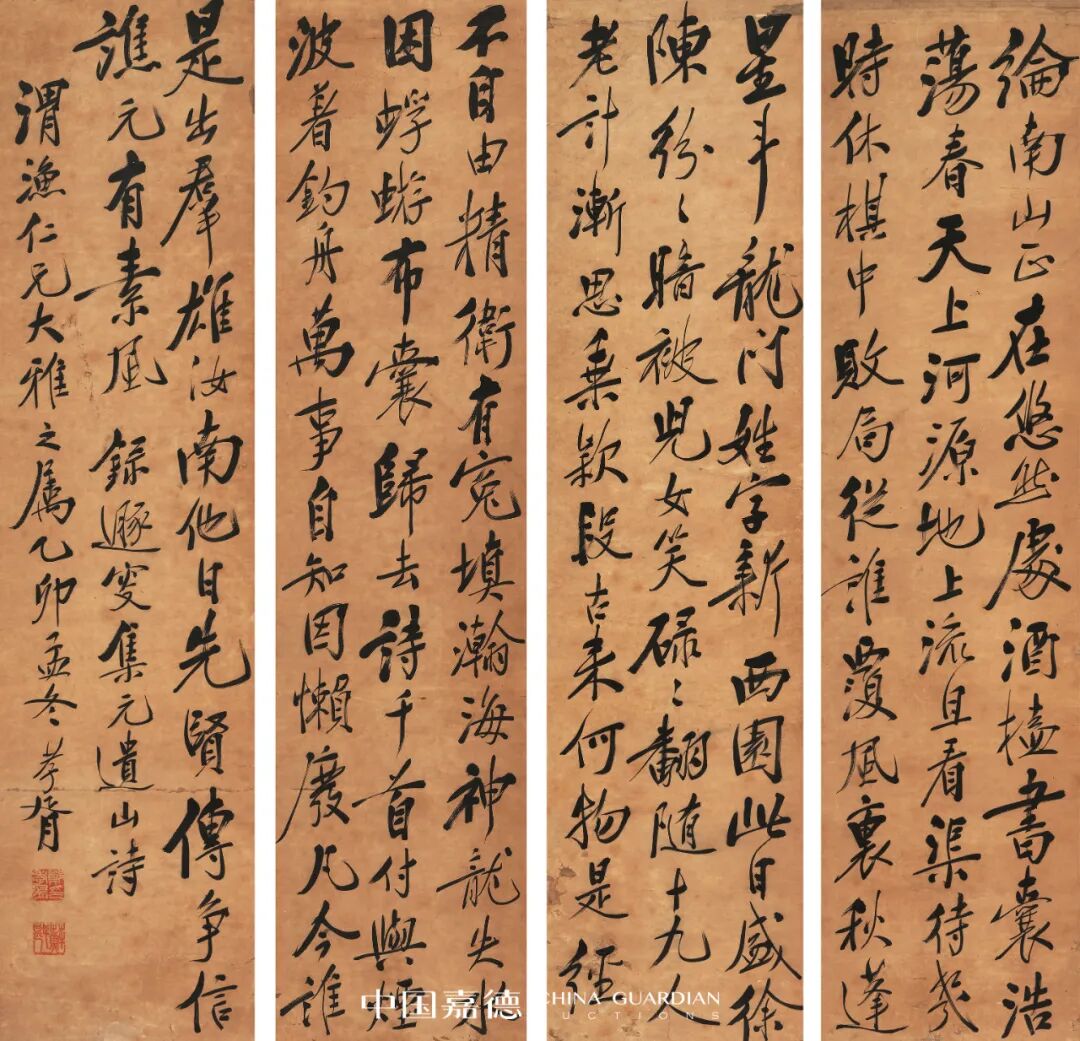 論南山正在悠然處酒榼書囊浩
蕩春天上河源地上流且看渠待幾
時休棋中敗局從誰覆風裏秋蓬
星斗龍門姓字新西園此日盛徐
陳紛〻暗被兒女笑碌〻翻隨十九人
老計漸思乘款段古來何物是經
不自由精衛有冤填瀚海神龍失
困蜉蝣布囊歸去詩千首付與煙
波着釣舟萬事自知因懶廢凡今誰
是出羣雄汝南他日先賢傳爭信
譙元有素風 錄遯叟集元遺山詩
渭漁仁兄大雅之屬乙卯孟冬孝胥
中国嘉德 CHINA GUARDIAN
AUCTIONS